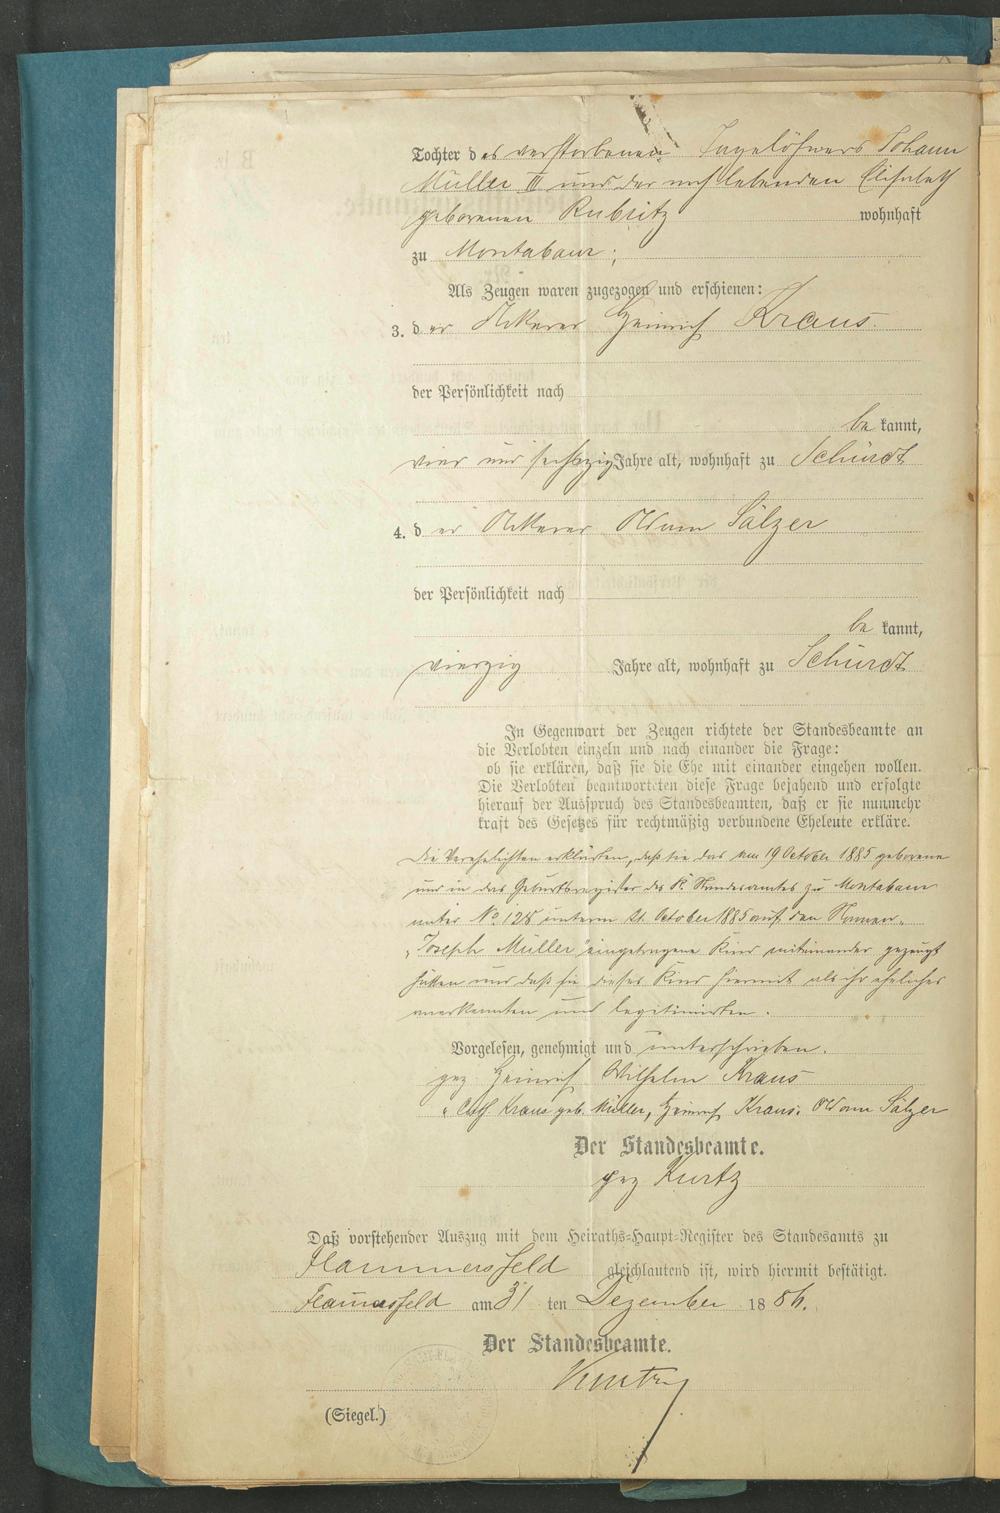 Tochter des verstorbenen Tagelöhners Johann
Müller III und der noch lebenden Elisabeth
geborenen Rubritz wohnhaft
zu Montabaur;
Als Zeugen waren zugezogen und erschienen:
3. der Ackerer Heinrich Kraus.
der Persönlichkeit nach
be kannt,
vier und sechszig Jahre alt, wohnhaft zu Schürdt
4. der Ackerer Adam Sälzer
der Persönlichkeit nach
be kannt,
vierzig Jahre alt, wohnhaft zu Schürdt
In Gegenwart der Zeugen richtete der Standesbeamte an
die Verlobten einzeln und nach einander die Frage:
ob sie erklären, daß sie die Ehe mit einander eingehen wollen.
Die Verlobten beantworteten diese Frage bejahend und erfolgte
hierauf der Ausspruch des Standesbeamten, daß er sie nunmehr
kraft des Gesetzes für rechtmäßig verbundene Eheleute erkläre.
Die Verehelichten erklärten, daß sie das am 19 October 1885 geborene
und in das Geburtsregister des K. Standesamtes zu Montabaur
unter No 128 unterm 21. October 1885 auf den Namen
„Joseph Müller" eingetragene Kind miteinander gezeugt
hätten und daß sie dieses Kind hiermit als ihr eheliches
anerkennten und legitimirten.
Vorgelesen, genehmigt und unterschrieben.
gez Heinrich Wilhelm Kraus
" Cath Kraus geb. Müller, Heinrich Kraus. Adam Sälzer
Der Standesbeamte.
gez Kurtz
Daß vorstehender Auszug mit dem Heiraths-Haupt-Register des Standesamts zu
Flammersfeld gleichlautend ist, wird hiermit bestätigt.
Flammersfeld am 31 ten Dezember 1886.
Der Standesbeamte.
Kurtz
(Siegel.)